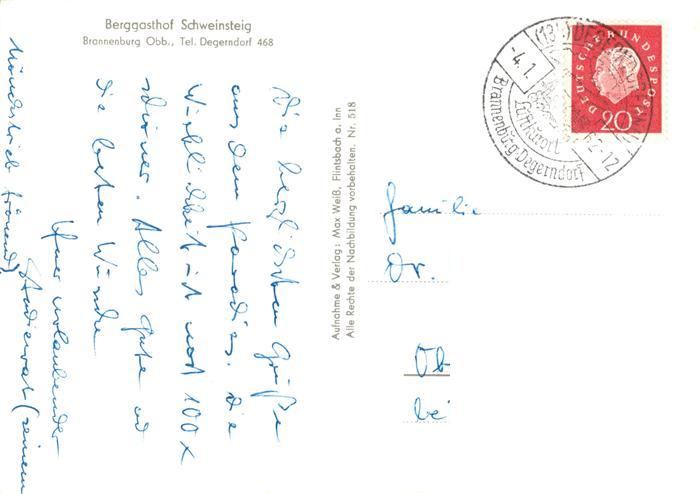 Berggasthof Schweinsteig
Brannenburg Obb., Tel. Degerndorf 468
Die herzlichsten Grüße
aus dem Paradies. Die
Wirklichkeit ist noch 100 x
schöner. Alles Gute und
die besten Wünsche
Euer urlaubender
Studienrat (seinem
frönend)
Aufnahme & Verlag: Max Weiß, Flintsbach a. Inn
Alle Rechte der Nachbildung vorbehalten. Nr. 518
DEUTSCHE BUNDESPOST
20
-4.1.
-12
Luftkurort
Brannenburg-Degerndorf
Familie
Dr.
Ob
bei